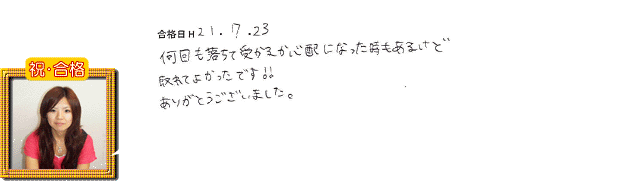 合格日 H 21.7.23
何回も落ちて受かるか心配になった時もあるけど
取れてよかったです!!
ありがとうございました。
祝・合格